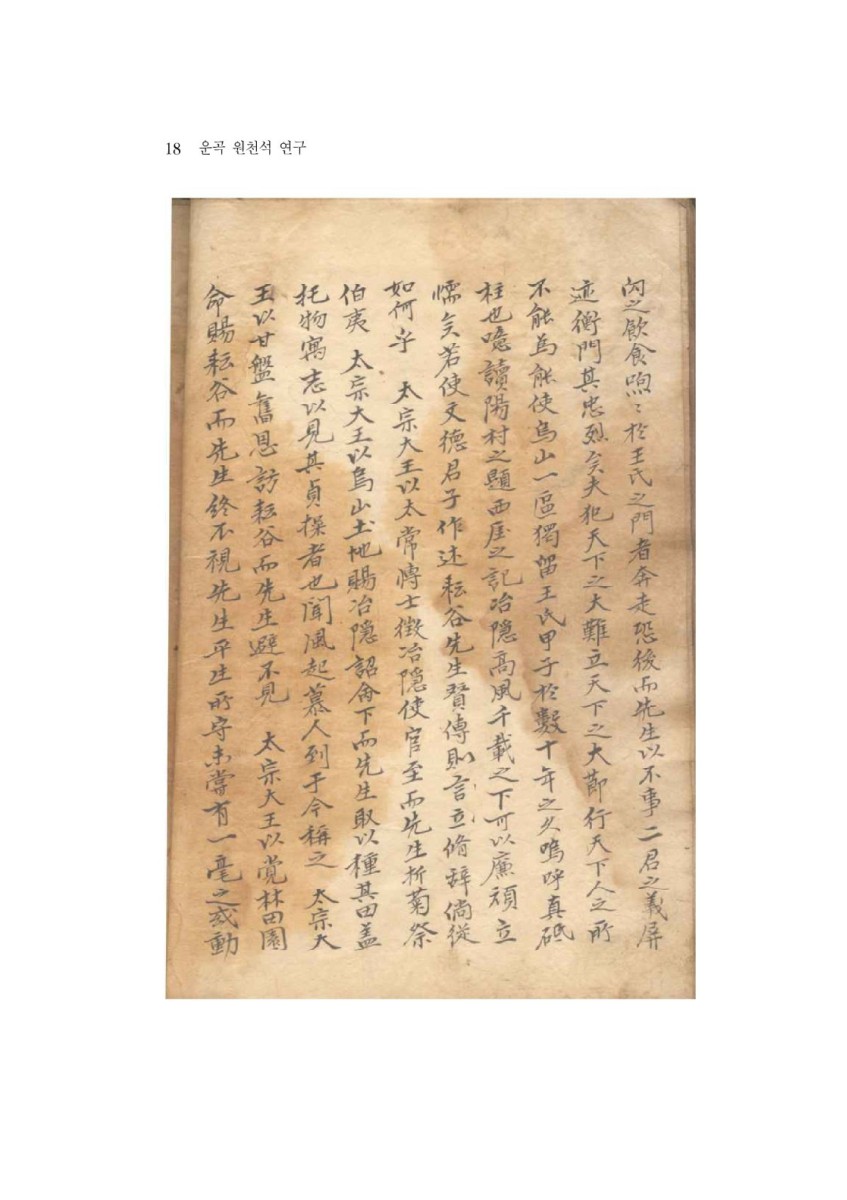 18 운곡 원천석 연구
閃之飮食喣〻於王氏之門者奔走恐後而先生以不事二君之義屛
迹衡門其忠烈矣夫犯天下之大難立天下之大節行天下人之所
不能爲能使烏山一區獨留王氏甲子於數十年之久嗚呼真砥
柱也噫讀陽村之題西厓之記冶隱高風千載之下可以廉頑立
懦矣若使文德君子作述耘谷先生賢傳則言立脩辞倘從
如何乎 太宗大王以太常博士徵冶隱使官至而先生折菊祭
伯夷 太宗大王以烏山土地賜冶隱詔命下而先生取以種其田盖
托物寓志以見其貞操者也聞風起慕人到于今稱之 太宗大
王以甘盤舊恩訪耘谷而先生避不見 太宗大王以覺林田園
命賜耘谷而先生終不視先生平生所守未嘗有一毫之或動